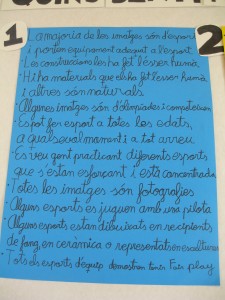 1
2
La majoria de les imatges són d'esports
i porten equipament adequat a l'esport.
Les construccions les ha fet l'ésser humà
Hi ha materials que els ha fet l'ésser humà
i altres són naturals
Algunes imatges són d'olimpíades i competicions
Es pot fer esport a totes les edats,
a qualsevol moment i a tot arreu
Es veu gent practicant diferents esports
que s'estan esforçant i està concentrada
Totes les imatges són fotografies
Alguns esports es juguen amb una pilota
Alguns esports estan dibuixats en recipients
de fang, en ceràmica o representats en escultures
Tots els esports d'equip demostren tenir Fair play